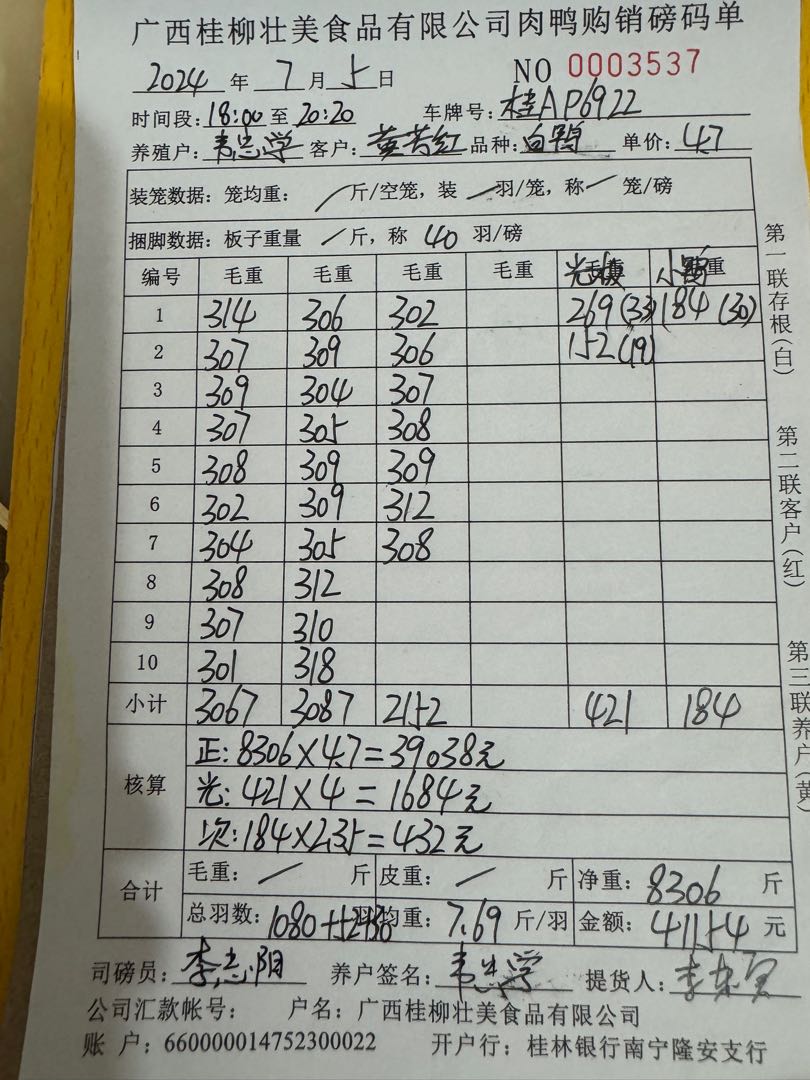 广西桂柳壮美食品有限公司肉鸭购销磅码单
2024 年 7 月 5 日 NO 0003537
时间段: 18:00 至 20:20 车牌号: 桂AP6922
养殖户: 韦忠学 客户: 黄芳红 品种: 白鸭 单价: 4.7
装笼数据: 笼均重: / 斤/空笼, 装 / 羽/笼, 称 / 笼/磅
捆脚数据: 板子重量 / 斤, 称 40 羽/磅
编号 毛重 毛重 毛重 毛重 小鸭
1 314 306 302 269(33) 184(30)
2 307 309 306 152(19)
3 309 304 307
4 307 305 308
5 308 309 309
6 302 309 312
7 304 305 308
8 308 312
9 307 310
10 301 318
小计 3067 3087 2152 421 184
核算
正: 8306×4.7=39038元
光: 421×4=1684元
次: 184×2.35=432元
合计
毛重: / 斤 皮重: / 斤 净重: 8306 斤
总羽数: 1080+52+30 羽 均重: 7.69 斤/羽 金额: 41154 元
司磅员: 李志阳 养户签名: 韦忠学 提货人:
公司汇款帐号: 户名: 广西桂柳壮美食品有限公司
账 户: 660000014752300022 开户行: 桂林银行南宁隆安支行
第一联存根(白)
第二联客户(红)
第三联养户(黄)